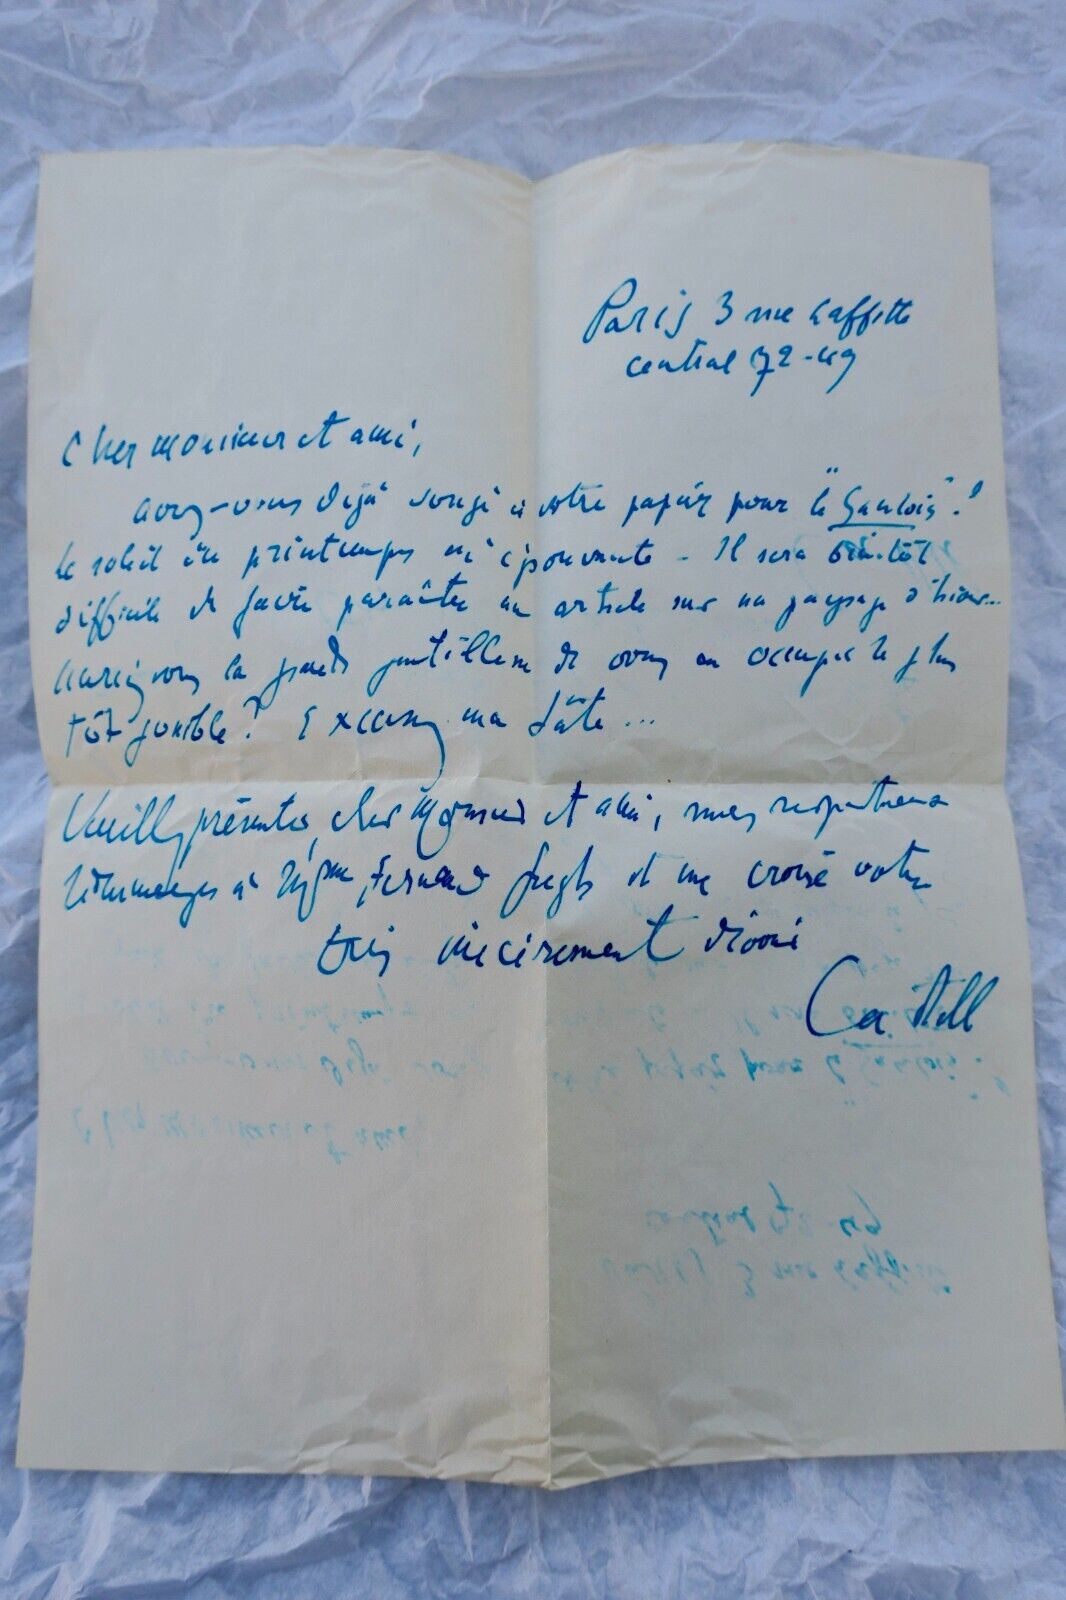 Paris 3 rue Laffitte
central 72-49
Cher monsieur et ami,
avez-vous déjà songé à votre papier pour le "Gaulois"?
Le soleil du printemps m'épouvante - Il sera bientôt
difficile de faire paraître un article sur un paysage d'hiver...
Auriez vous la grande gentillesse de vous en occuper le plus
tôt possible? Excusez ma hâte...
Veuillez présenter, cher Monsieur et ami, mes respectueux
hommages à Mme Fernand Gregh et me croire votre
très sincèrement dévoué